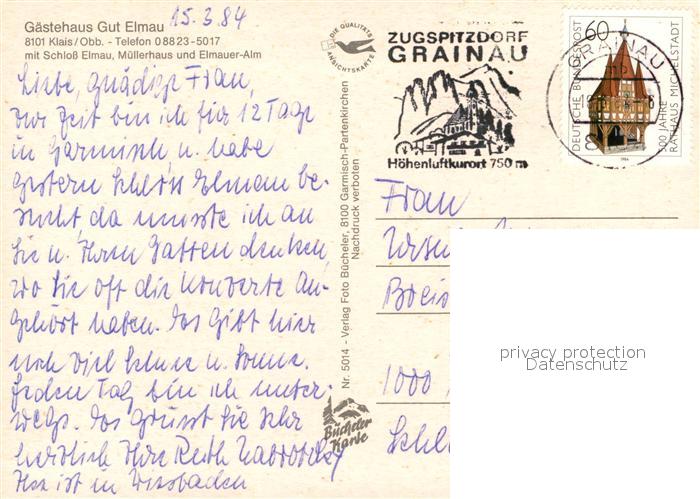 15.3.84
Gästehaus Gut Elmau
8101 Klais/Obb. - Telefon 08823-5017
mit Schloß Elmau, Müllerhaus und Elmauer-Alm
Liebe, gnädige Frau,
zur Zeit bin ich für 12 Tage
in Garmisch u. habe
gestern Schloss Elmau be-
sucht, da musste ich an
Sie u. Ihren Gatten denken,
wo Sie oft die Konzerte an-
gehört haben. Es gibt hier
noch viel Schnee u. Sonne.
Jeden Tag bin ich unter-
wegs. Es grüsst Sie sehr
herzlich Ihre Ruth
ist in Wiesbaden
Nr. 5014 - Verlag Foto Bücheler, 8100 Garmisch-Partenkirchen
Nachdruck verboten
Bücheler
Karte
DIE QUALITÄTS
ANSICHTSKARTE
ZUGSPITZDORF
GRAINAU
Höhenluftkurort 750 m
GRAINAU
DEUTSCHE BUNDESPOST
60
500 JAHRE
RATHAUS MICHELSTADT
1984
Frau
1000
privacy protection
Datenschutz